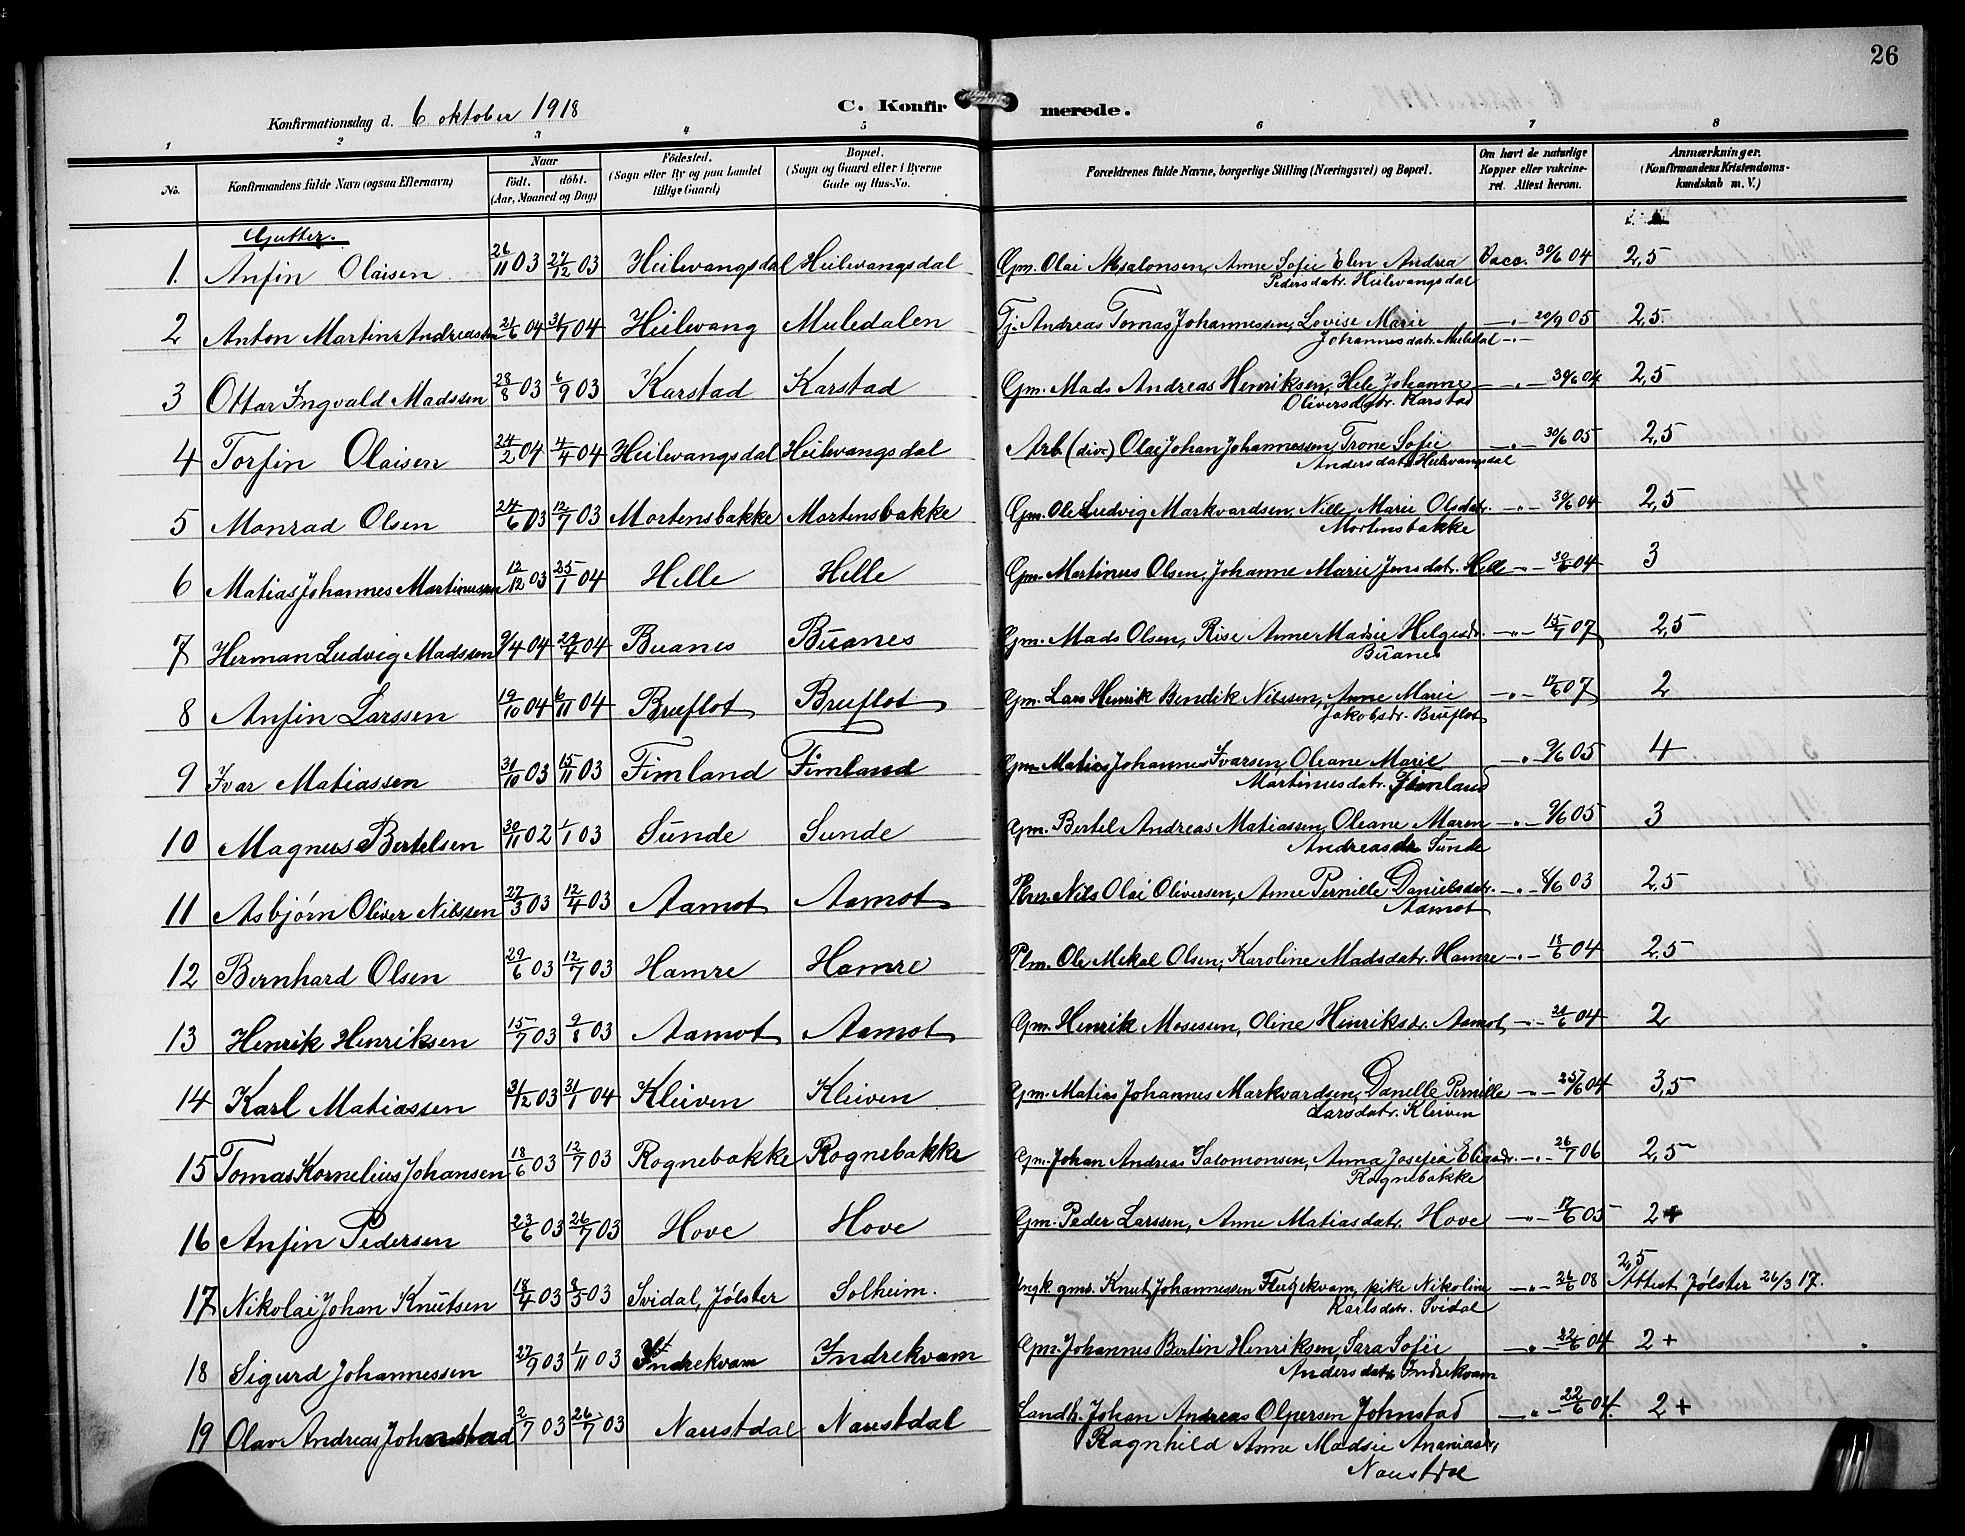 26
Konfirmationsdag d. 6 oktober 1918
C. Konfirmerede.
1 2 3 4 5 6 7 8
No.
Konfirmandens fulde Navn (ogsaa Efternavn)
Naar
født. døbt.
(Aar, Maaned og Dag)
Fødested.
(Sogn eller By og paa Landet
tillige Gaard)
Bopæl.
(Sogn og Gaard eller i Byerne
Gade og Hus-No.
Forældrenes fulde Navne, borgerlige Stilling (Næringsvei) og Bopæl.
Om havt de naturlige
Kopper eller vakcine-
ret. Attest herom.
Anmærkninger.
(Konfirmandens Kristendoms-
kundskab m. V.)
Gutter.
1. Anfin Olaisen 26/11 03 27/12 03 Heilevangsdal Heilevangsdal Gm. Olai Absalonsen, Anne Sofie Elen Andrea Vacc. 30/6 04 2,5
Pedersdatr. Heilevangsdal
2 Anton Martin Andreassen 21/6 04 31/7 04 Heilevang Muledalen Tj. Andreas Tomas Johannessen, Lovise Marie -"- 20/9 05 2,5
Johannesdatr. Muledal -"-
3 Ottar Ingvald Madssen 28/8 03 6/9 03 Karstad Karstad Gm. Mads Andreas Henriksen, Hele Johanne -"- 30/6 04 2,5
Oliversdatr. Karstad
4 Torfin Olaisen 24/2 04 4/4 04 Heilevangsdal Heilevangsdal Arb. (div.) Olai Johan Johannessen, Trone Sofie -"- 30/6 05 2,5
Andersdatr. Heilevangsdal
5 Monrad Olsen 24/6 03 12/7 03 Mortensbakke Mortensbakke Gm. Ole Ludvig Markvardsen, Nille Marie Olsdatr. -"- 30/6 04 2,5
Mortensbakke
6 Matias Johannes Martinussen 12/12 03 25/1 04 Helle Helle Gm. Martinus Olsen, Johanne Marie Jensdatr. Helle -"- 30/6 04 3
7 Herman Ludvig Madssen 9/4 04 24/4 04 Buanes Buanes Gm. Mads Olsen, Rise Anne Madsie Helgesdr. -"- 15/7 07 2,5
Buanes
8 Anfin Larssen 19/10 04 6/11 04 Bruflot Bruflot Gm. Lars Henrik Bendik Nilssen, Anne Marie -"- 12/6 07 2
Jakobsdr. Bruflot
9 Ivar Matiassen 31/10 03 15/11 03 Fimland Fimland Gm. Matias Johannes Ivarsen, Oleane Marie -"- 9/6 05 4
Martinusdatr. Fimland
10 Magnus Bertelsen 30/11 02 1/1 03 Sunde Sunde Gm. Bertel Andreas Matiassen, Oleane Maren -"- 9/6 05 3
Andreasdr. Sunde
11 Asbjørn Oliver Nilssen 27/3 03 12/4 03 Aamot Aamot Nils Olai Oliversen, Anne Pernille Danielsdatr. -"- 8/6 03 2,5
Aamot
12 Bernhard Olsen 29/6 03 12/7 03 Hamre Hamre Plm. Ole Mikal Olsen, Karoline Madsdatr. Hamre -"- 18/6 04 2,5
13 Henrik Henriksen 15/7 03 9/8 03 Aamot Aamot Gm. Henrik Mosesen, Oline Henriksdr. Aamot -"- 21/6 04 2
14 Karl Matiassen 31/12 03 31/1 04 Kleiven Kleiven Gm. Matias Johannes Markvardsen, Danelle Pernille -"- 25/6 04 3,5
Larsdatr. Kleiven
15 Tomas Kornelius Johansen 18/6 03 12/7 03 Rognebakke Rognebakke Gm. Johan Andreas Salomonsen, Anna Josefia Eliasdr. -"- 26/7 06 2,5
Rognebakke
16 Anfin Pedersen 23/6 03 26/7 03 Hove Hove Gm. Peder Larssen, Anne Matiasdatr. Hove -"- 17/6 05 2+
17 Nikolai Johan Knutsen 18/4 03 8/5 03 Svidal, Jølster Solheim. Ungk. gmd. Knut Johannessen Flugekvam, pike Nikoline -"- 26/6 08 2,5 Attest Jølster 26/3 17.
Karlsdatr. Svidal
18 Sigurd Johannessen 27/9 03 1/11 03 Indrekvam Indrekvam Gm. Johannes Bertin Henriksen, Sara Sofie -"- 22/6 04 2+
Andersdatr. Indrekvam
19 Olav Andreas Johnstad 2/7 03 26/7 03 Naustdal Naustdal Landh. Johan Andreas Olpersen Johnstad -"- 22/6 04. 2+
Ragnhild Anne Madsie Ananiasdr.
Naustdal